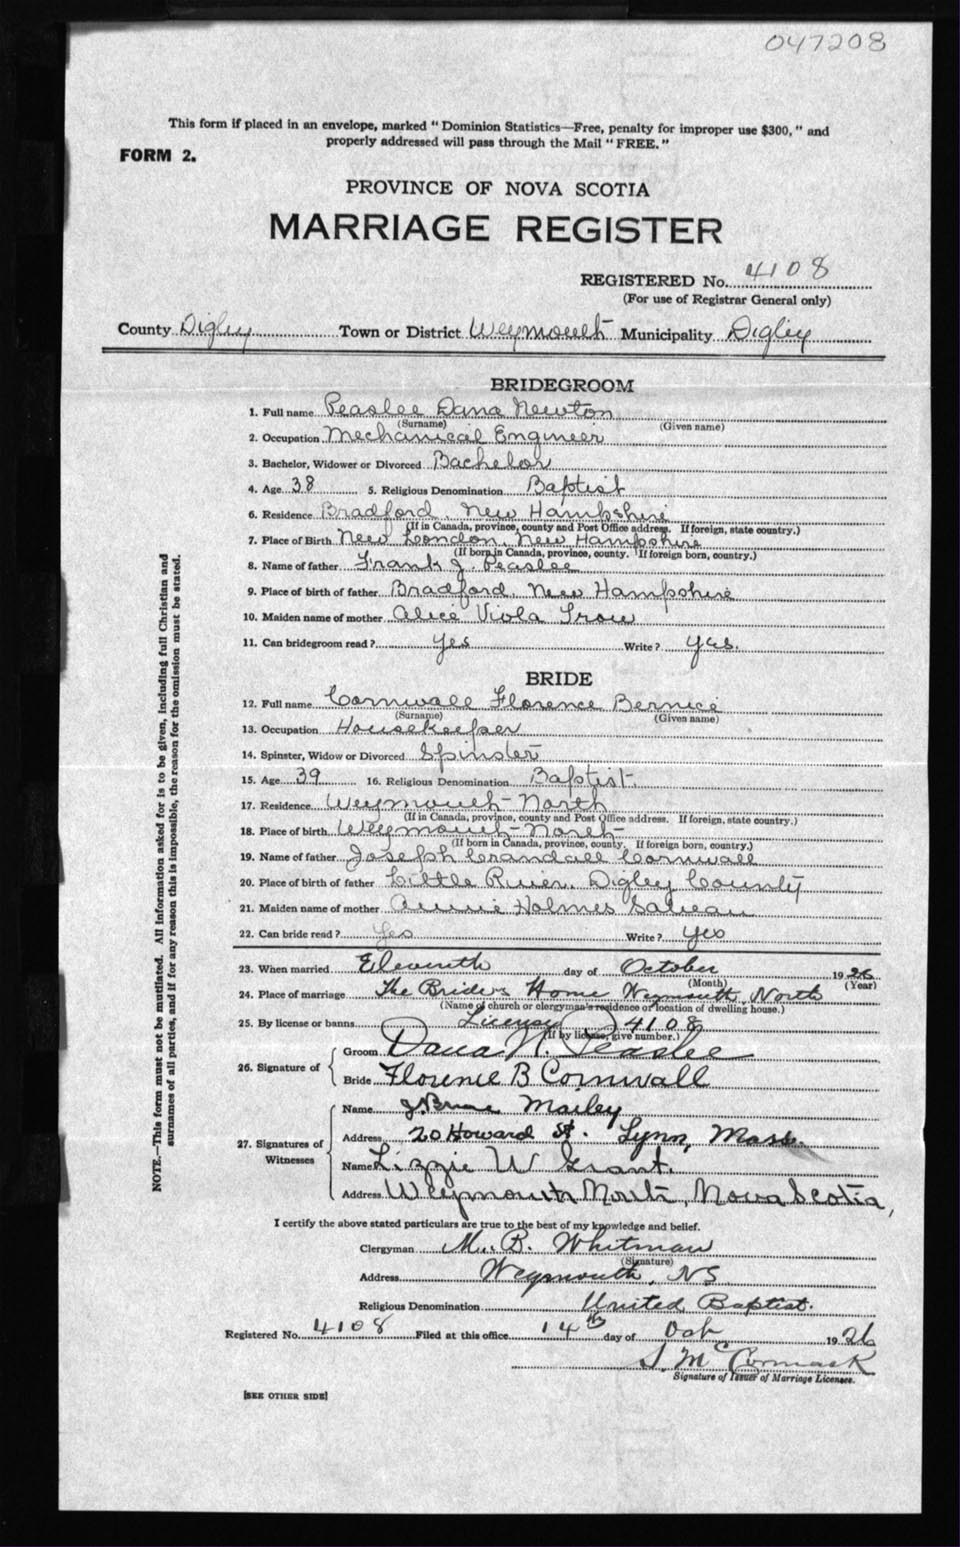 047208
This form if placed in an envelope, marked " Dominion Statistics—Free, penalty for improper use $300, " and
properly addressed will pass through the Mail " FREE. "
FORM 2.
PROVINCE OF NOVA SCOTIA
MARRIAGE REGISTER
REGISTERED No. 4108
(For use of Registrar General only)
County Digby Town or District Weymouth Municipality Digby
BRIDEGROOM
1. Full name Peaslee Dana Newton
(Surname) (Given name)
2. Occupation Mechanical Engineer
3. Bachelor, Widower or Divorced Bachelor
4. Age 38 5. Religious Denomination Baptist
6. Residence Bradford, New Hampshire
(If in Canada, province, county and Post Office address. If foreign, state country.)
7. Place of Birth New London, New Hampshire
(If born in Canada, province, county. If foreign born, country.)
8. Name of father Frank J. Peaslee
9. Place of birth of father Bradford, New Hampshire
10. Maiden name of mother Alice Viola Trow
11. Can bridegroom read? Yes Write? Yes.
BRIDE
12. Full name Cornwall Florence Bernice
(Surname) (Given name)
13. Occupation Housekeeper
14. Spinster, Widow or Divorced Spinster
15. Age 39 16. Religious Denomination Baptist.
17. Residence Weymouth North
(If in Canada, province, county and Post Office address. If foreign, state country.)
18. Place of birth Weymouth North
(If born in Canada, province, county. If foreign born, country.)
19. Name of father Joseph Crandall Cornwall
20. Place of birth of father Little River, Digby County
21. Maiden name of mother Annie Holmes Sabean
22. Can bride read? Yes Write? Yes
23. When married Eleventh day of October 1926
(Month) (Year)
24. Place of marriage The Brides Home Weymouth North
(Name of church or clergyman's residence or location of dwelling house.)
25. By license or banns License 4108
(If by license, give number.)
26. Signature of
Groom Dana N. Peaslee
Bride Florence B Cornwall
27. Signatures of Witnesses
Name J. Bruce Mailey
Address 20 Howard St. Lynn, Mass.
Name Lizzie W Grant.
Address Weymouth North, Nova Scotia,
I certify the above stated particulars are true to the best of my knowledge and belief.
Clergyman M. B. Whitman
(Signature)
Address Weymouth, NS
Religious Denomination United Baptist.
Registered No. 4108 Filed at this office 14th day of Oct 1926
S. McCormack
Signature of Issuer of Marriage Licenses.
[SEE OTHER SIDE]
NOTE.—This form must not be mutilated. All information asked for is to be given, including full Christian and
surnames of all parties, and if for any reason this is impossible, the reason for the omission must be stated.